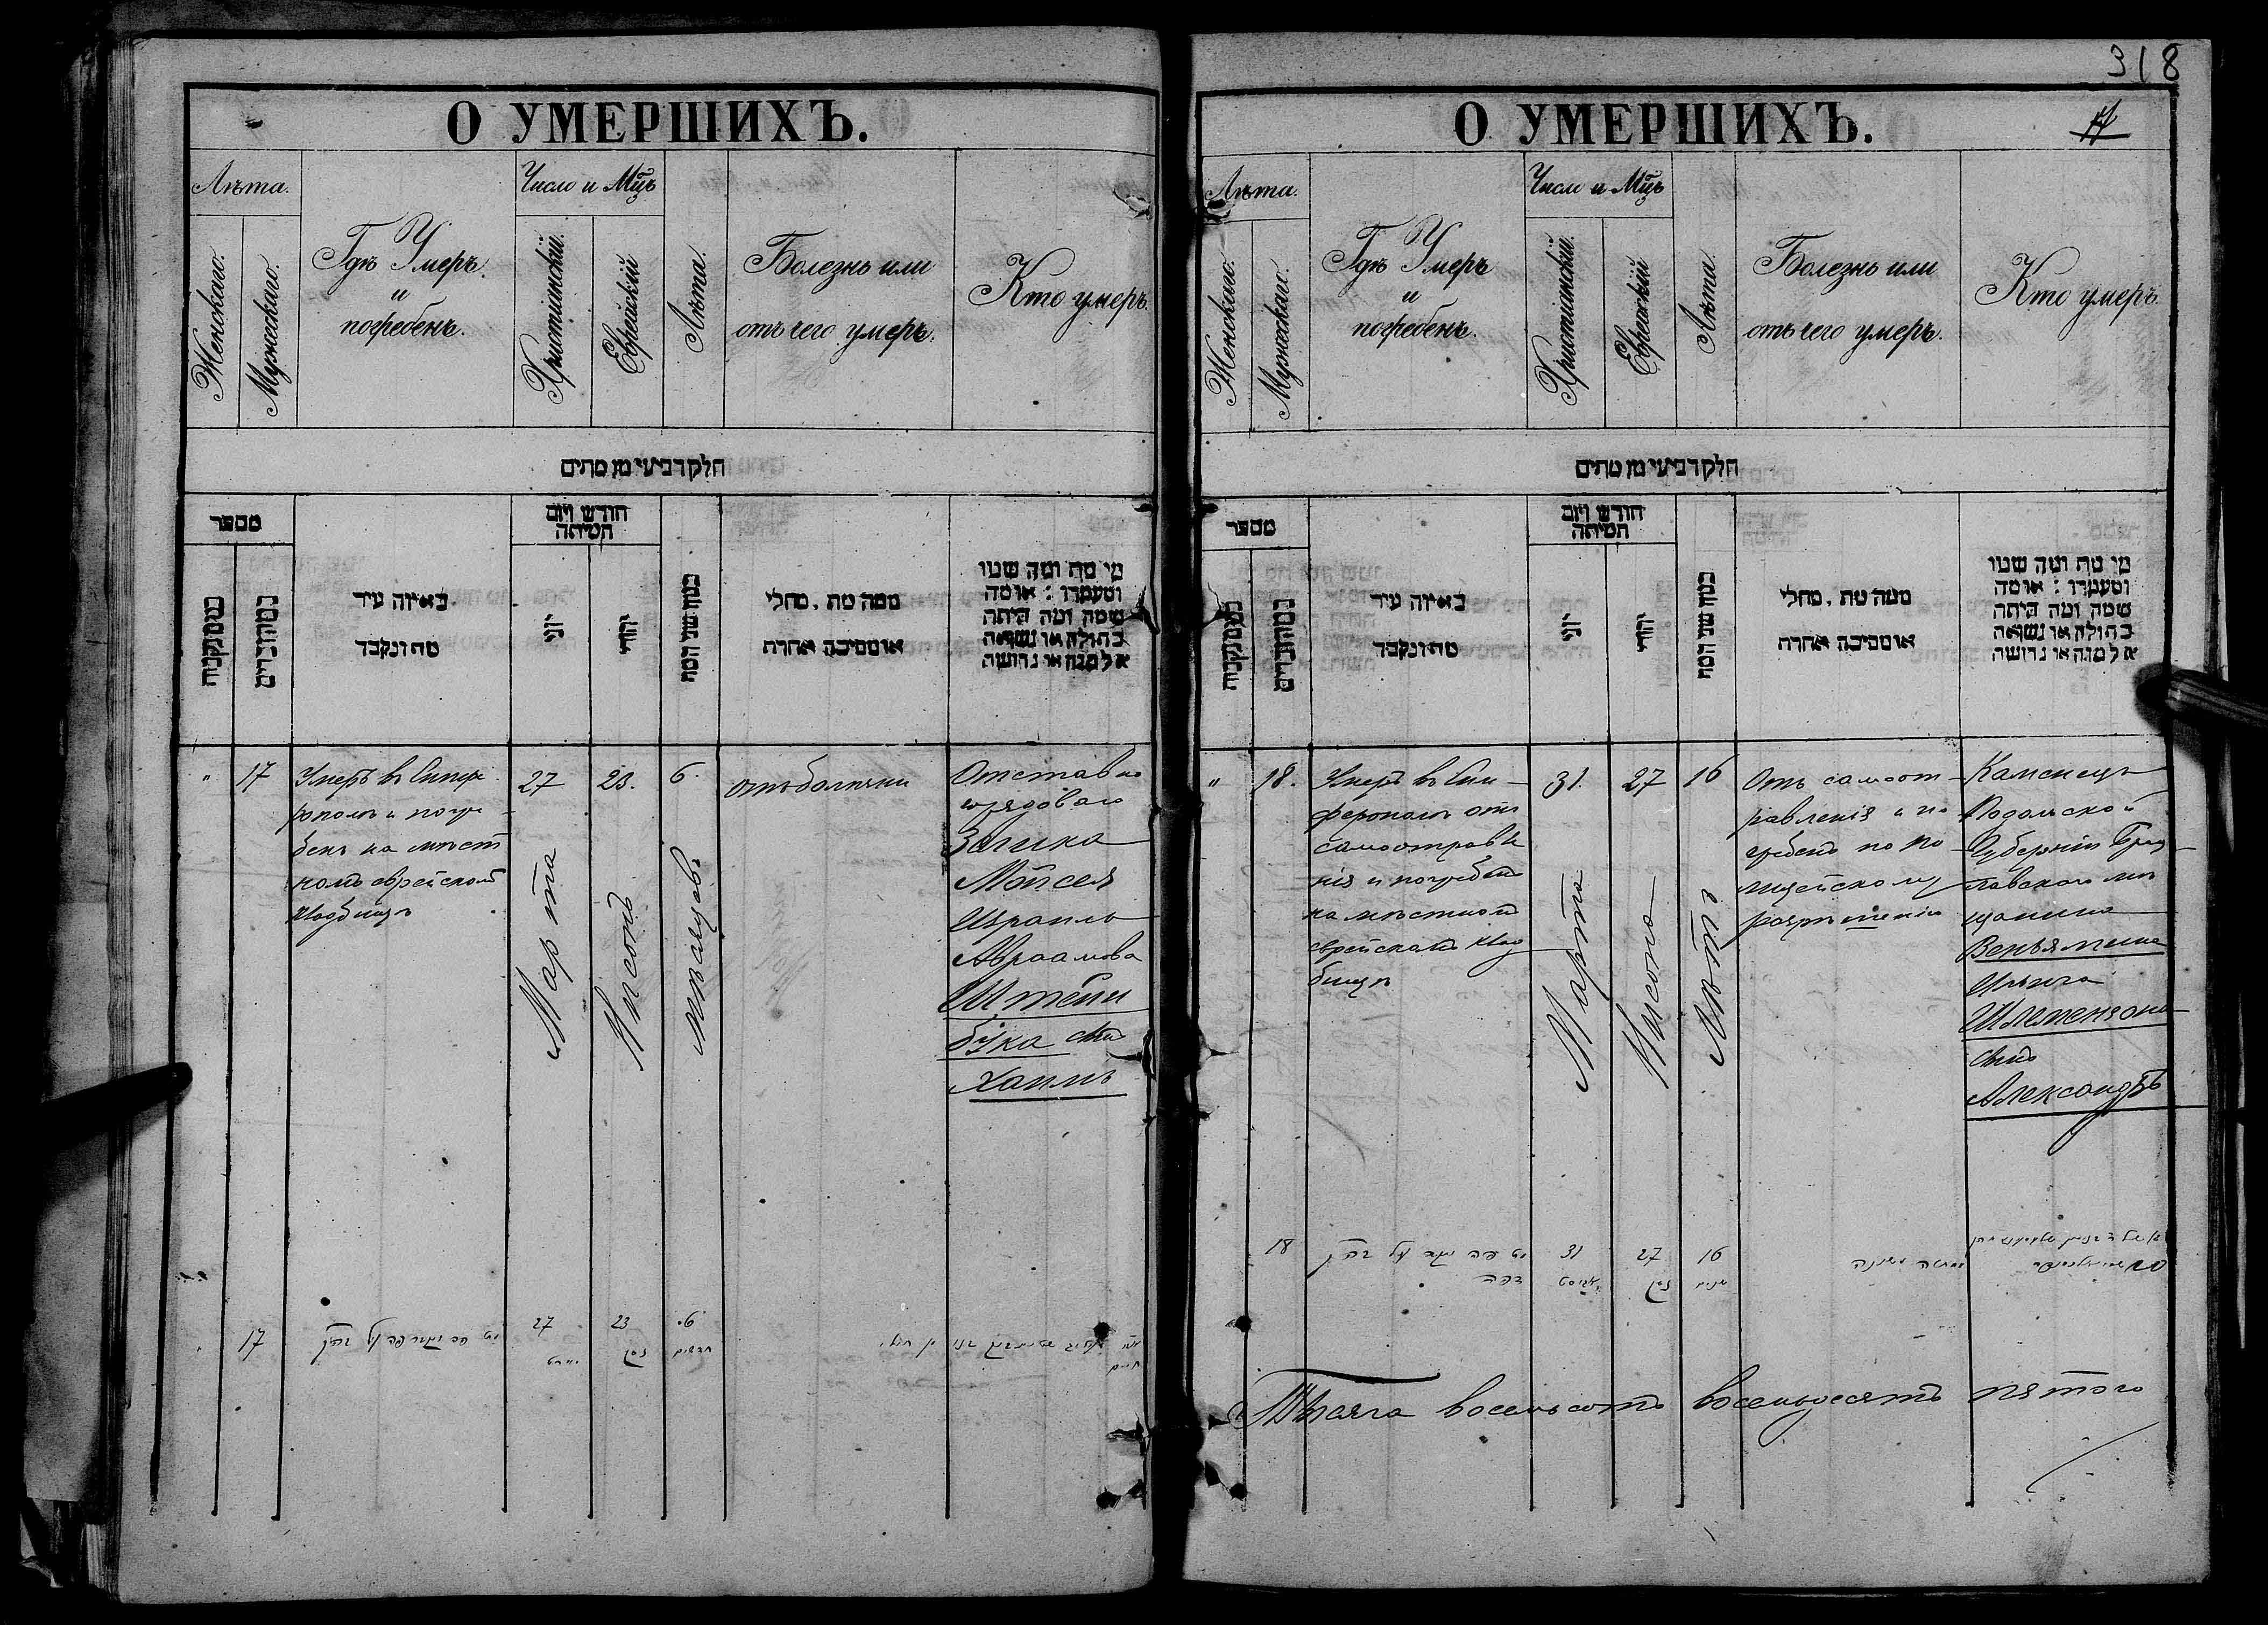 318
О УМЕРШИХЪ.
Лѣта.
Женскаго.
Мужескаго.
Гдѣ Умеръ
и
погребенъ.
Число и Мц̃ъ
Христіанскій.
Еврейскій
Лѣта.
Болезнь или
отъ чего умеръ.
Кто умеръ.
חלק רביעי מן מתים
מספר
באיזה עיר
מת ונקבר
חודש ויום
המיתה
יוני
יהודי
ממה מת, מחלי
או מסיבה אחרת
מי מת ומה שמו
ומעמדו: או מה
שמה ומה היתה
בתולה או נשואה
אלמנה או גרושה
" 17
Умеръ въ Симфе
рополѣ и погре
бенъ на мѣст
номъ еврейскомъ
кладбищѣ
27
Марта
23.
Нисонъ
6.
мѣсяцовъ
отъ болѣзни
Отставно
рядоваго
Зелика
Мойсея
Израиль
Авраамова
Штейн
бука сынъ
Хаимъ
17
27
23
6.
ניסן
חדשים
О УМЕРШИХЪ.
Лѣта.
Женскаго.
Мужескаго.
Гдѣ Умеръ
и
погребенъ.
Число и Мц̃ъ
Христіанскій.
Еврейскій
Лѣта.
Болезнь или
отъ чего умеръ.
Кто умеръ.
חלק רביעי מן מתים
מספר
באיזה עיר
מת ונקבר
חודש ויום
המיתה
יוני
יהודי
ממה מת, מחלי
או מסיבה אחרת
מי מת ומה שמו
ומעמדו: או מה
שמה ומה היתה
בתולה או נשואה
אלמנה או גרושה
" 18.
Умеръ въ Сим
ферополѣ отъ
самоотравле
нія и погребенъ
на мѣстномъ
еврейскомъ клад
бищѣ
31.
Марта
27
Нисона
16
Лѣтъ
Отъ самоот
равленія и по
гребенъ по по
лицейскому
разрѣшенію
Каменецъ
Подольской
Губерніи Брац
лавскаго мѣ
щанина
Веньямина
Шлемензона
сынъ
Александръ
18
31
27
16
ניסן
שנים
Тысяча восемьсотъ восемьдесятъ пятого